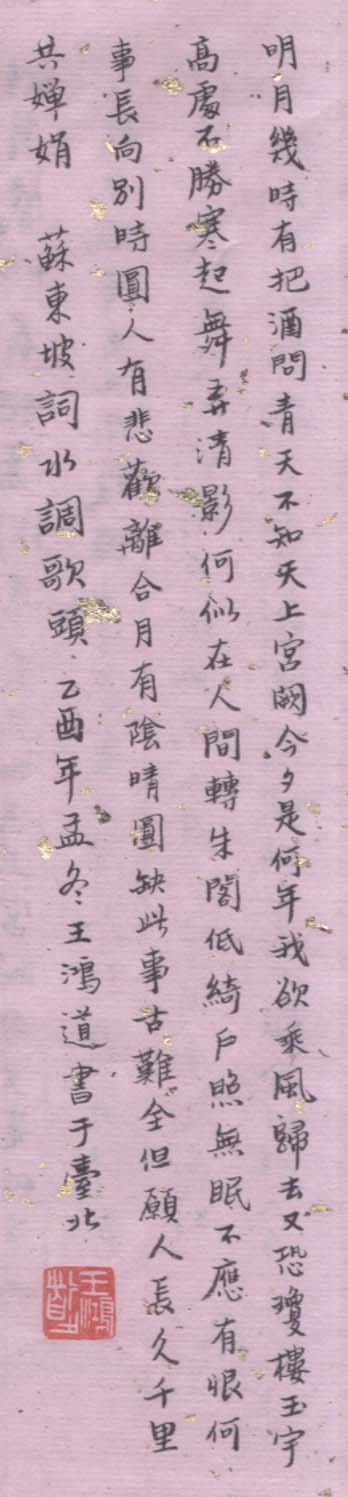 明月幾時有把酒問青天不知天上宮闕今夕是何年我欲乘風歸去又恐瓊樓玉宇
高處不勝寒起舞弄清影何似在人間轉朱閣低綺戶照無眠不應有恨何
事長向別時圓人有悲歡離合月有陰晴圓缺此事古難全但願人長久千里
共嬋娟 蘇東坡詞水調歌頭 乙酉年孟冬王鴻道書于臺北
王鴻